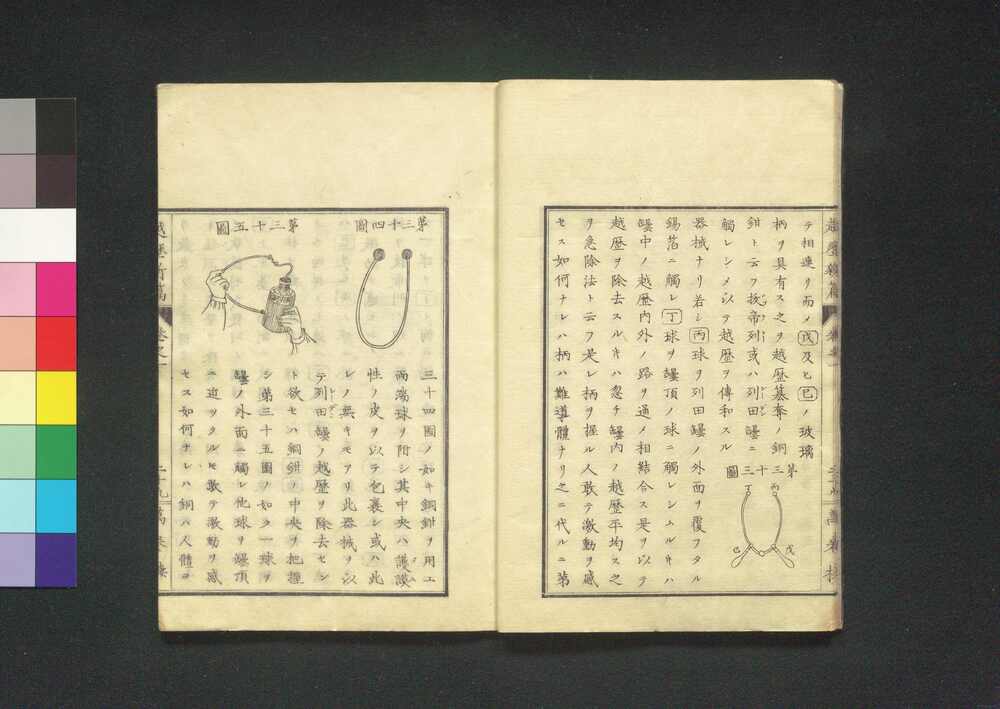 テ相連リ而メ戊及ヒ己ノ玻璃
柄ヲ具有ス之ヲ越歴墓奪ノ銅
鉗ト云フ扻帝列或ハ列田罎ニ
觸レシメ以テ越歴ヲ傳和スル
器械ナリ若シ丙球ヲ列田罎ノ外面ヲ覆フタル
錫箔ニ觸レ丁球ヲ罎頂ノ球ニ觸レシムルキハ
罎中ノ越歴内外ノ路ヲ通メ相結合ス是ヲ以テ
越歴ヲ除去スルキハ忽チ罎内ノ越歴平均ス之
ヲ急除法ト云フ是レ柄ヲ握ル人敢テ激動ヲ感
セス如何ナレハ柄ハ難導體ナリ之ニ代ルニ第
第三十三圖
丁
丙
己
戊
第三十四圖
第三十五圖
三十四圖ノ如キ銅鉗ヲ用エ
両端球ヲ附シ其中央ハ護謨
性ノ皮ヲ以テ包裹シ或ハ此
レノ無キモアリ此器械ヲ以
テ列田罎ノ越歴ヲ除去セン
ト欲セハ銅鉗ノ中央ヲ把握
シ第三十五圖ノ如ク一球ヲ
罎ノ外面ニ觸レ他球ヲ罎頂
ニ迫ツクルモ敢テ激動ヲ感
セス如何ナレハ銅ハ人體ヨ